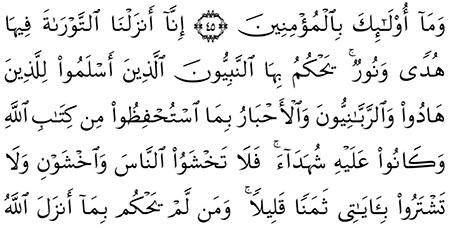 وَمَآ أُوْلَـٰٓئِكَ بِٱلْمُؤْمِنِينَ ﴿٤٥﴾ إِنَّآ أَنزَلْنَا ٱلتَّوْرَىٰةَ فِيهَا
هُدًى وَنُورٌ ۚ يَحْكُمُ بِهَا ٱلنَّبِيُّونَ ٱلَّذِينَ أَسْلَمُوا۟ لِلَّذِينَ
هَادُوا۟ وَٱلرَّبَّـٰنِيُّونَ وَٱلْأَحْبَارُ بِمَا ٱسْتُحْفِظُوا۟ مِن كِتَـٰبِ ٱللَّهِ
وَكَانُوا۟ عَلَيْهِ شُهَدَآءَ ۚ فَلَا تَخْشَوُا۟ ٱلنَّاسَ وَٱخْشَوْنِ وَلَا
تَشْتَرُوا۟ بِـَٔايَـٰتِى ثَمَنًا قَلِيلًا ۚ وَمَن لَّمْ يَحْكُم بِمَآ أَنزَلَ ٱللَّهُ